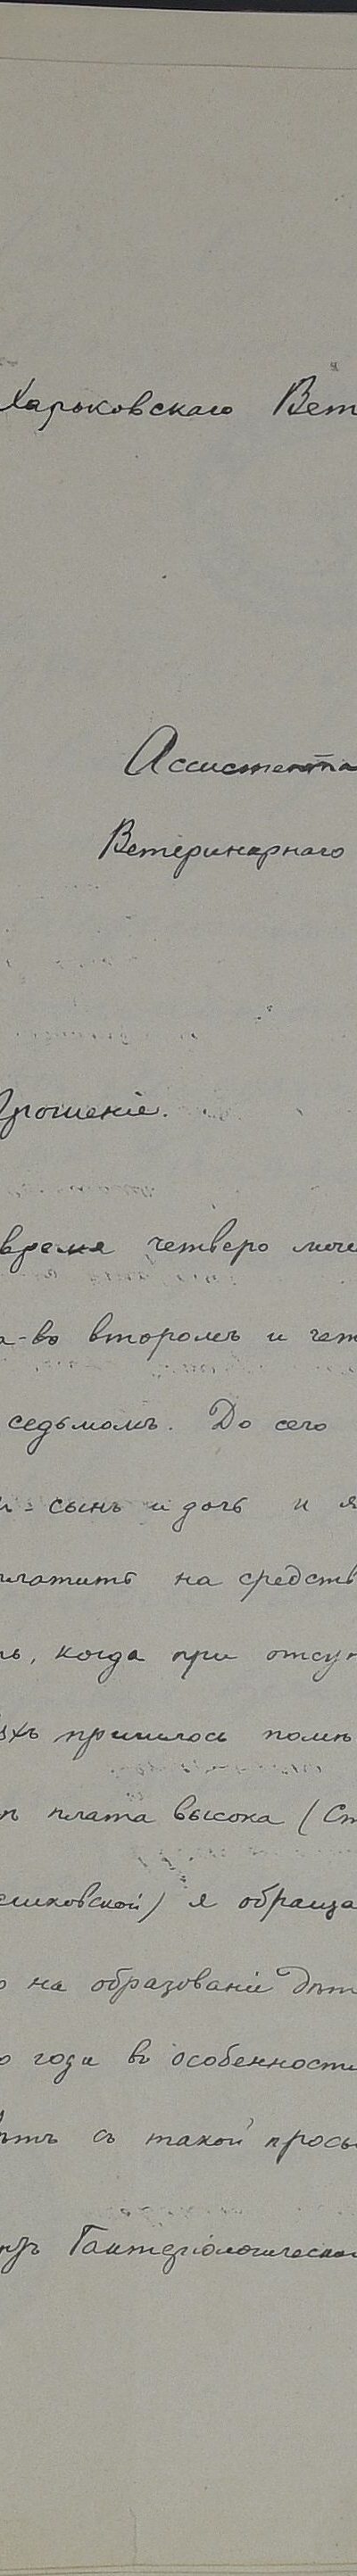 Харьковскаго Вет
Ассистента
Ветеринарнаго
Прошеніе.
время четверо
а-во второмъ и чет
седьмомъ. До сего
сынъ и дочь и я
платить на средств
ль, когда при отсут
ыхъ пришлось помѣ
плата высока (Ст
емковской) я обраща
о на образованіе дѣт
о года въ особенности
ѣтъ съ такой прось
Бактеріологической